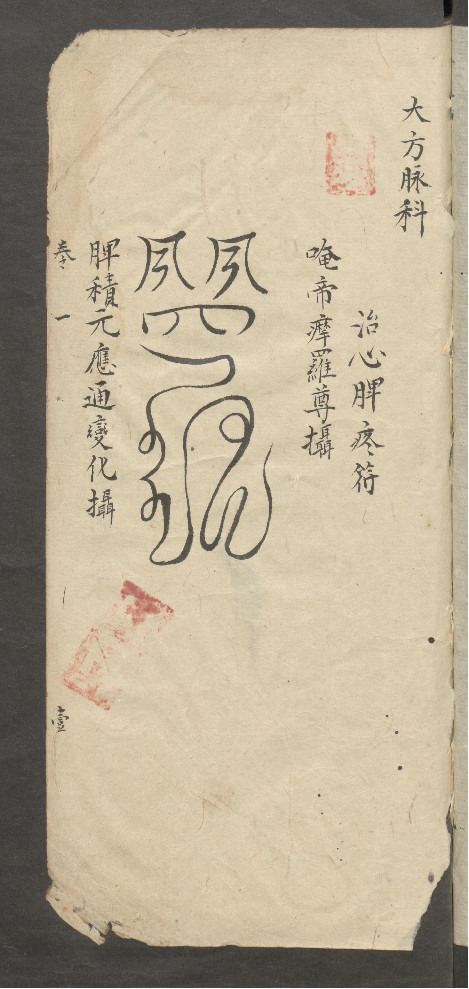 大方脉科
治心脾疼符
唵帝摩羅尊攝
脾積元應通變化攝
一
壹